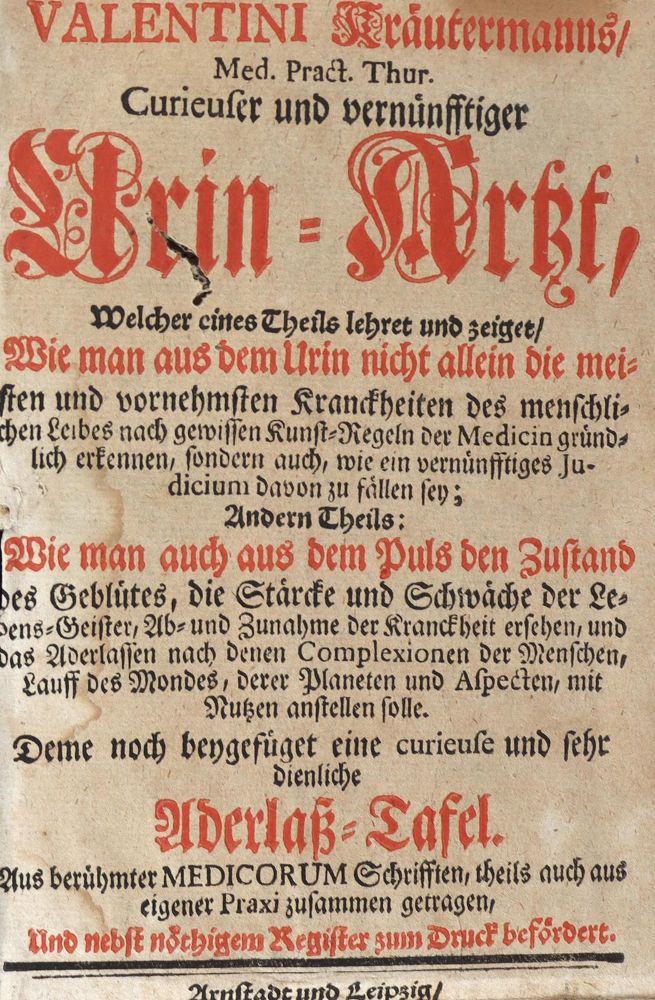 VALENTINI Kräutermanns/
Med. Pract. Thur.
Curieuser und vernünfftiger
Urin = Artzt,
Welcher eines Theils lehret und zeiget/
Wie man aus dem Urin nicht allein die mei-
sten und vornehmsten Kranckheiten des menschli-
chen Leibes nach gewissen Kunst-Regeln der Medicin gründ-
lich erkennen, sondern auch, wie ein vernünfftiges Ju-
dicium davon zu fällen sey;
Andern Theils:
Wie man auch aus dem Puls den Zustand
des Geblütes, die Stärcke und Schwäche der Le-
bens-Geister, Ab- und Zunahme der Kranckheit ersehen, und
das Aderlassen nach denen Complexionen der Menschen,
Lauff des Mondes, derer Planeten und Aspecten, mit
Nutzen anstellen solle.
Deme noch beygefüget eine curieuse und sehr
dienliche
Aderlaß-Tafel.
Aus berühmter MEDICORUM Schrifften, theils auch aus
eigener Praxi zusammen getragen,
Und nebst nöthigem Register zum Druck befördert.
Arnstadt und Leipzig/